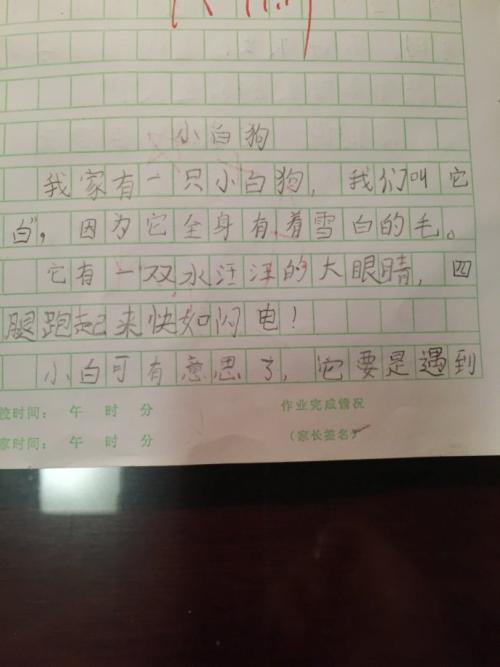 小白狗
我家有一只小白狗，我们叫它
白”，因为它全身有着雪白的毛。
它有一双水汪汪的大眼睛，四
腿跑起来快如闪电！
小白可有意思了，它要是遇到
校时间： 午 时 分 作业完成情况
家时间： 午 时 分 （家长签名）